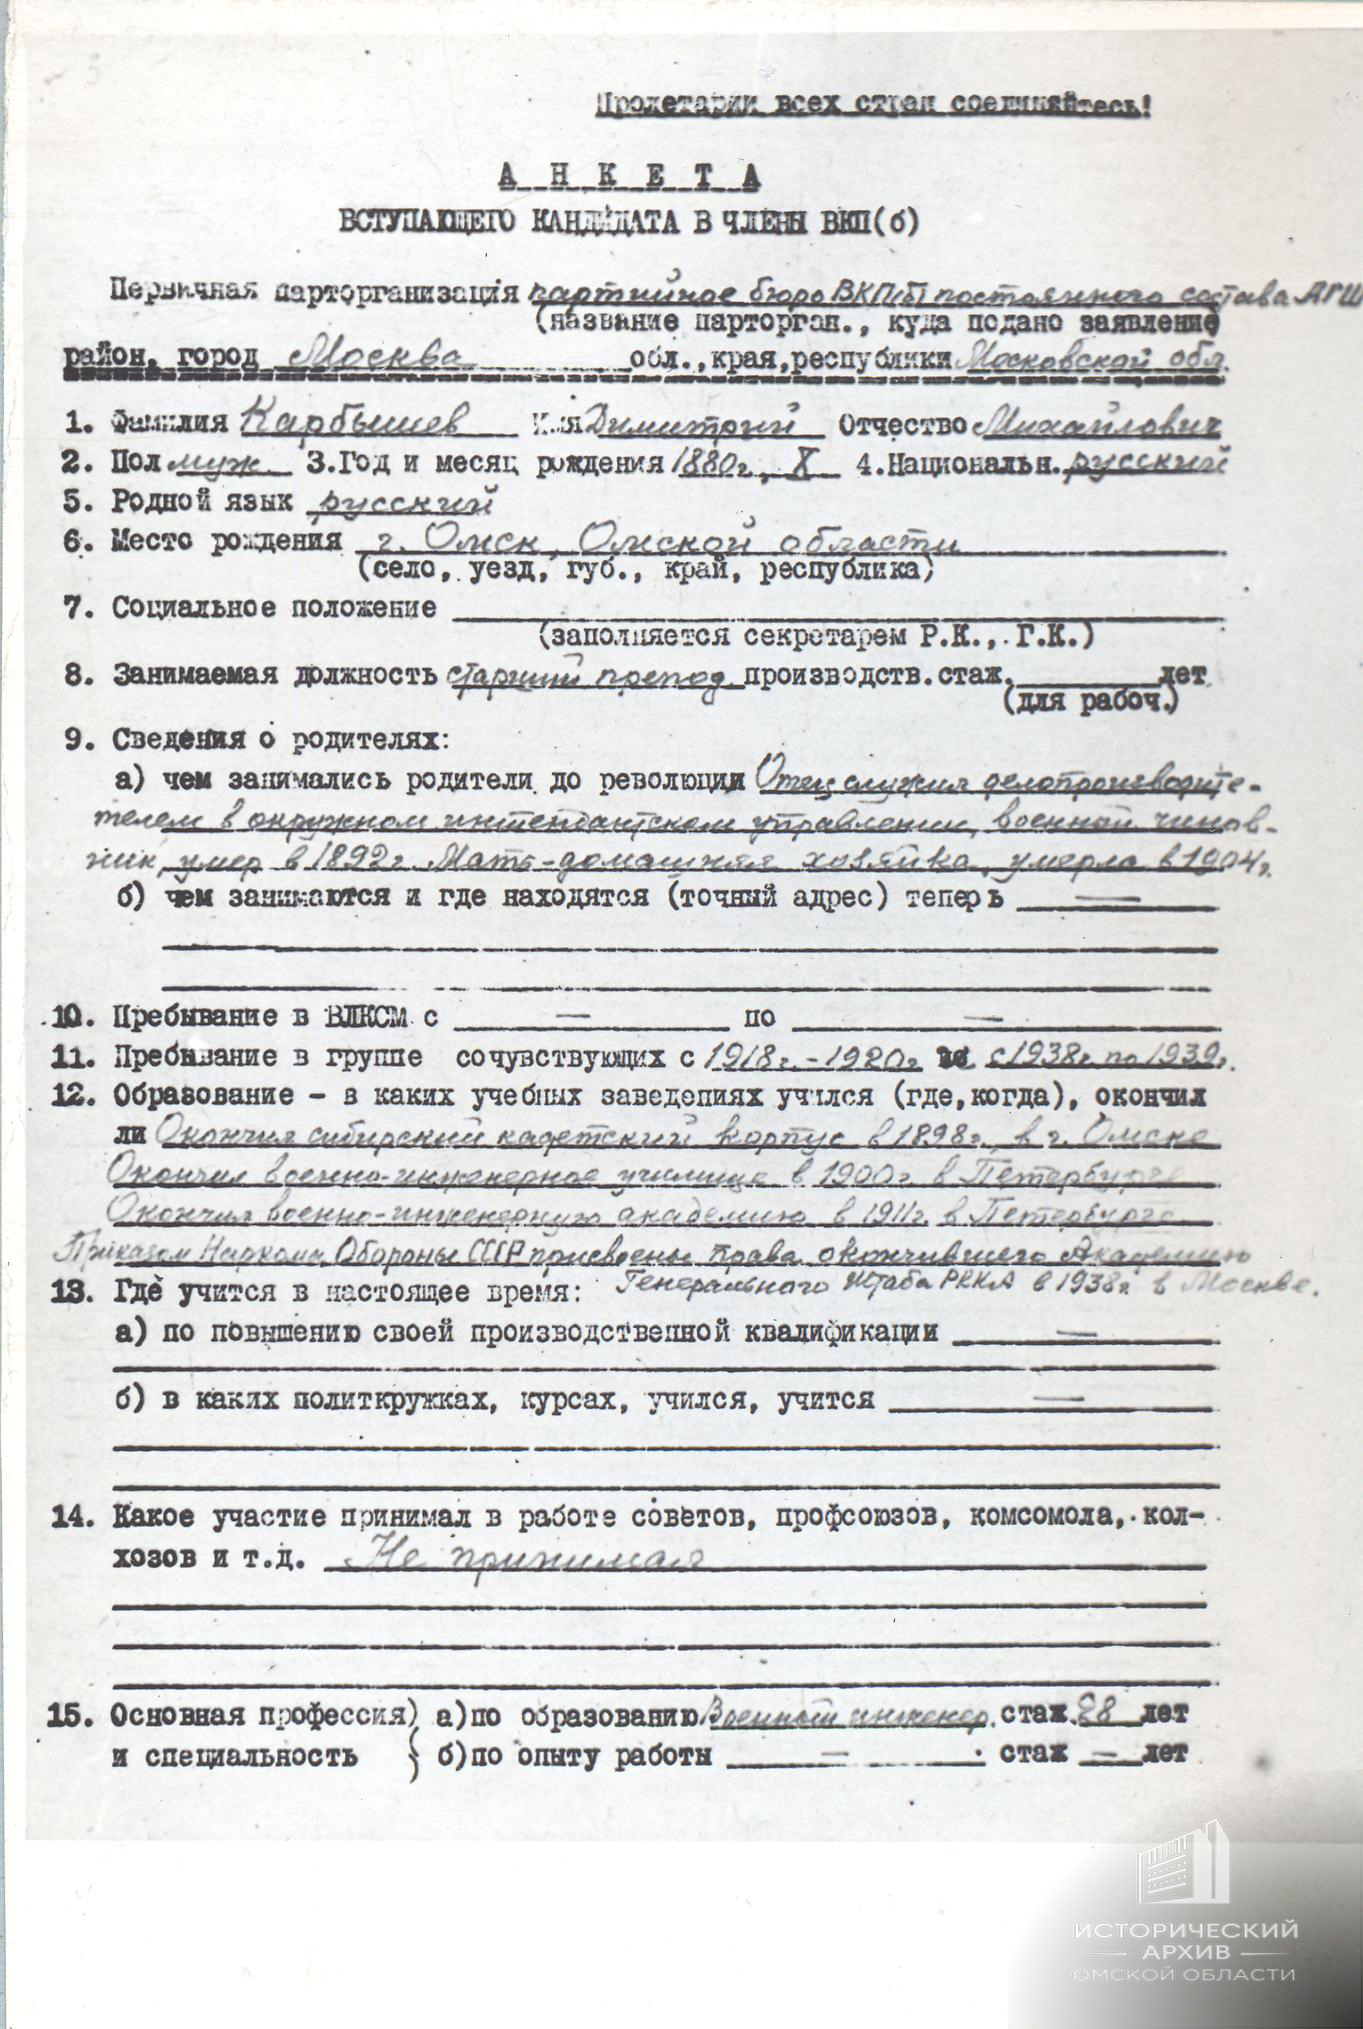 Пролетарии всех стран соединяйтесь!
АНКЕТА
ВСТУПАЮЩЕГО КАНДИДАТА В ЧЛЕНЫ ВКП(б)
Первичная парторганизация партийное бюро ВКП(б) постоянного состава АГШ
(название парторган., куда подано заявление)
район, город Москва обл., края, республики Московской обл.
1. Фамилия Карбышев Имя Димитрий Отчество Михайлович
2. Пол муж. 3. Год и месяц рождения 1880г., X 4. Национальн. русский
5. Родной язык русский
6. Место рождения г. Омск, Омской области
(село, уезд, губ., край, республика)
7. Социальное положение
(заполняется секретарем Р.К., Г.К.)
8. Занимаемая должность старший препод. производств. стаж. лет
(для рабоч.)
9. Сведения о родителях:
а) чем занимались родители до революции Отец служил делопроизводите-
телем в окружном интендантском управлении, военный чинов-
ник, умер в 1892г. Мать - домашняя хозяйка, умерла в 1904г.
б) чем занимаются и где находятся (точный адрес) теперь —
10. Пребывание в ВЛКСМ с — по —
11. Пребывание в группе сочувствующих с 1918г. - 1920г. с 1938г. по 1939г.
12. Образование – в каких учебных заведениях учился (где, когда), окончил
ли Окончил сибирский кадетский корпус в 1898г. в г. Омске
Окончил военно-инженерное училище в 1900г. в Петербурге
Окончил военно-инженерную академию в 1911г. в Петербурге
Приказом Наркома Обороны СССР присвоены права окончившего Академию
Генерального Штаба РККА в 1938г. в Москве.
13. Где учится в настоящее время:
а) по повышению своей производственной квалификации —
б) в каких политкружках, курсах, учился, учится —
14. Какое участие принимал в работе советов, профсоюзов, комсомола, кол-
хозов и т.д. Не принимал
15. Основная профессия) а) по образованию Военный инженер стаж 28 лет
и специальность б) по опыту работы — стаж — лет
ИСТОРИЧЕСКИЙ
АРХИВ
ОМСКОЙ ОБЛАСТИ